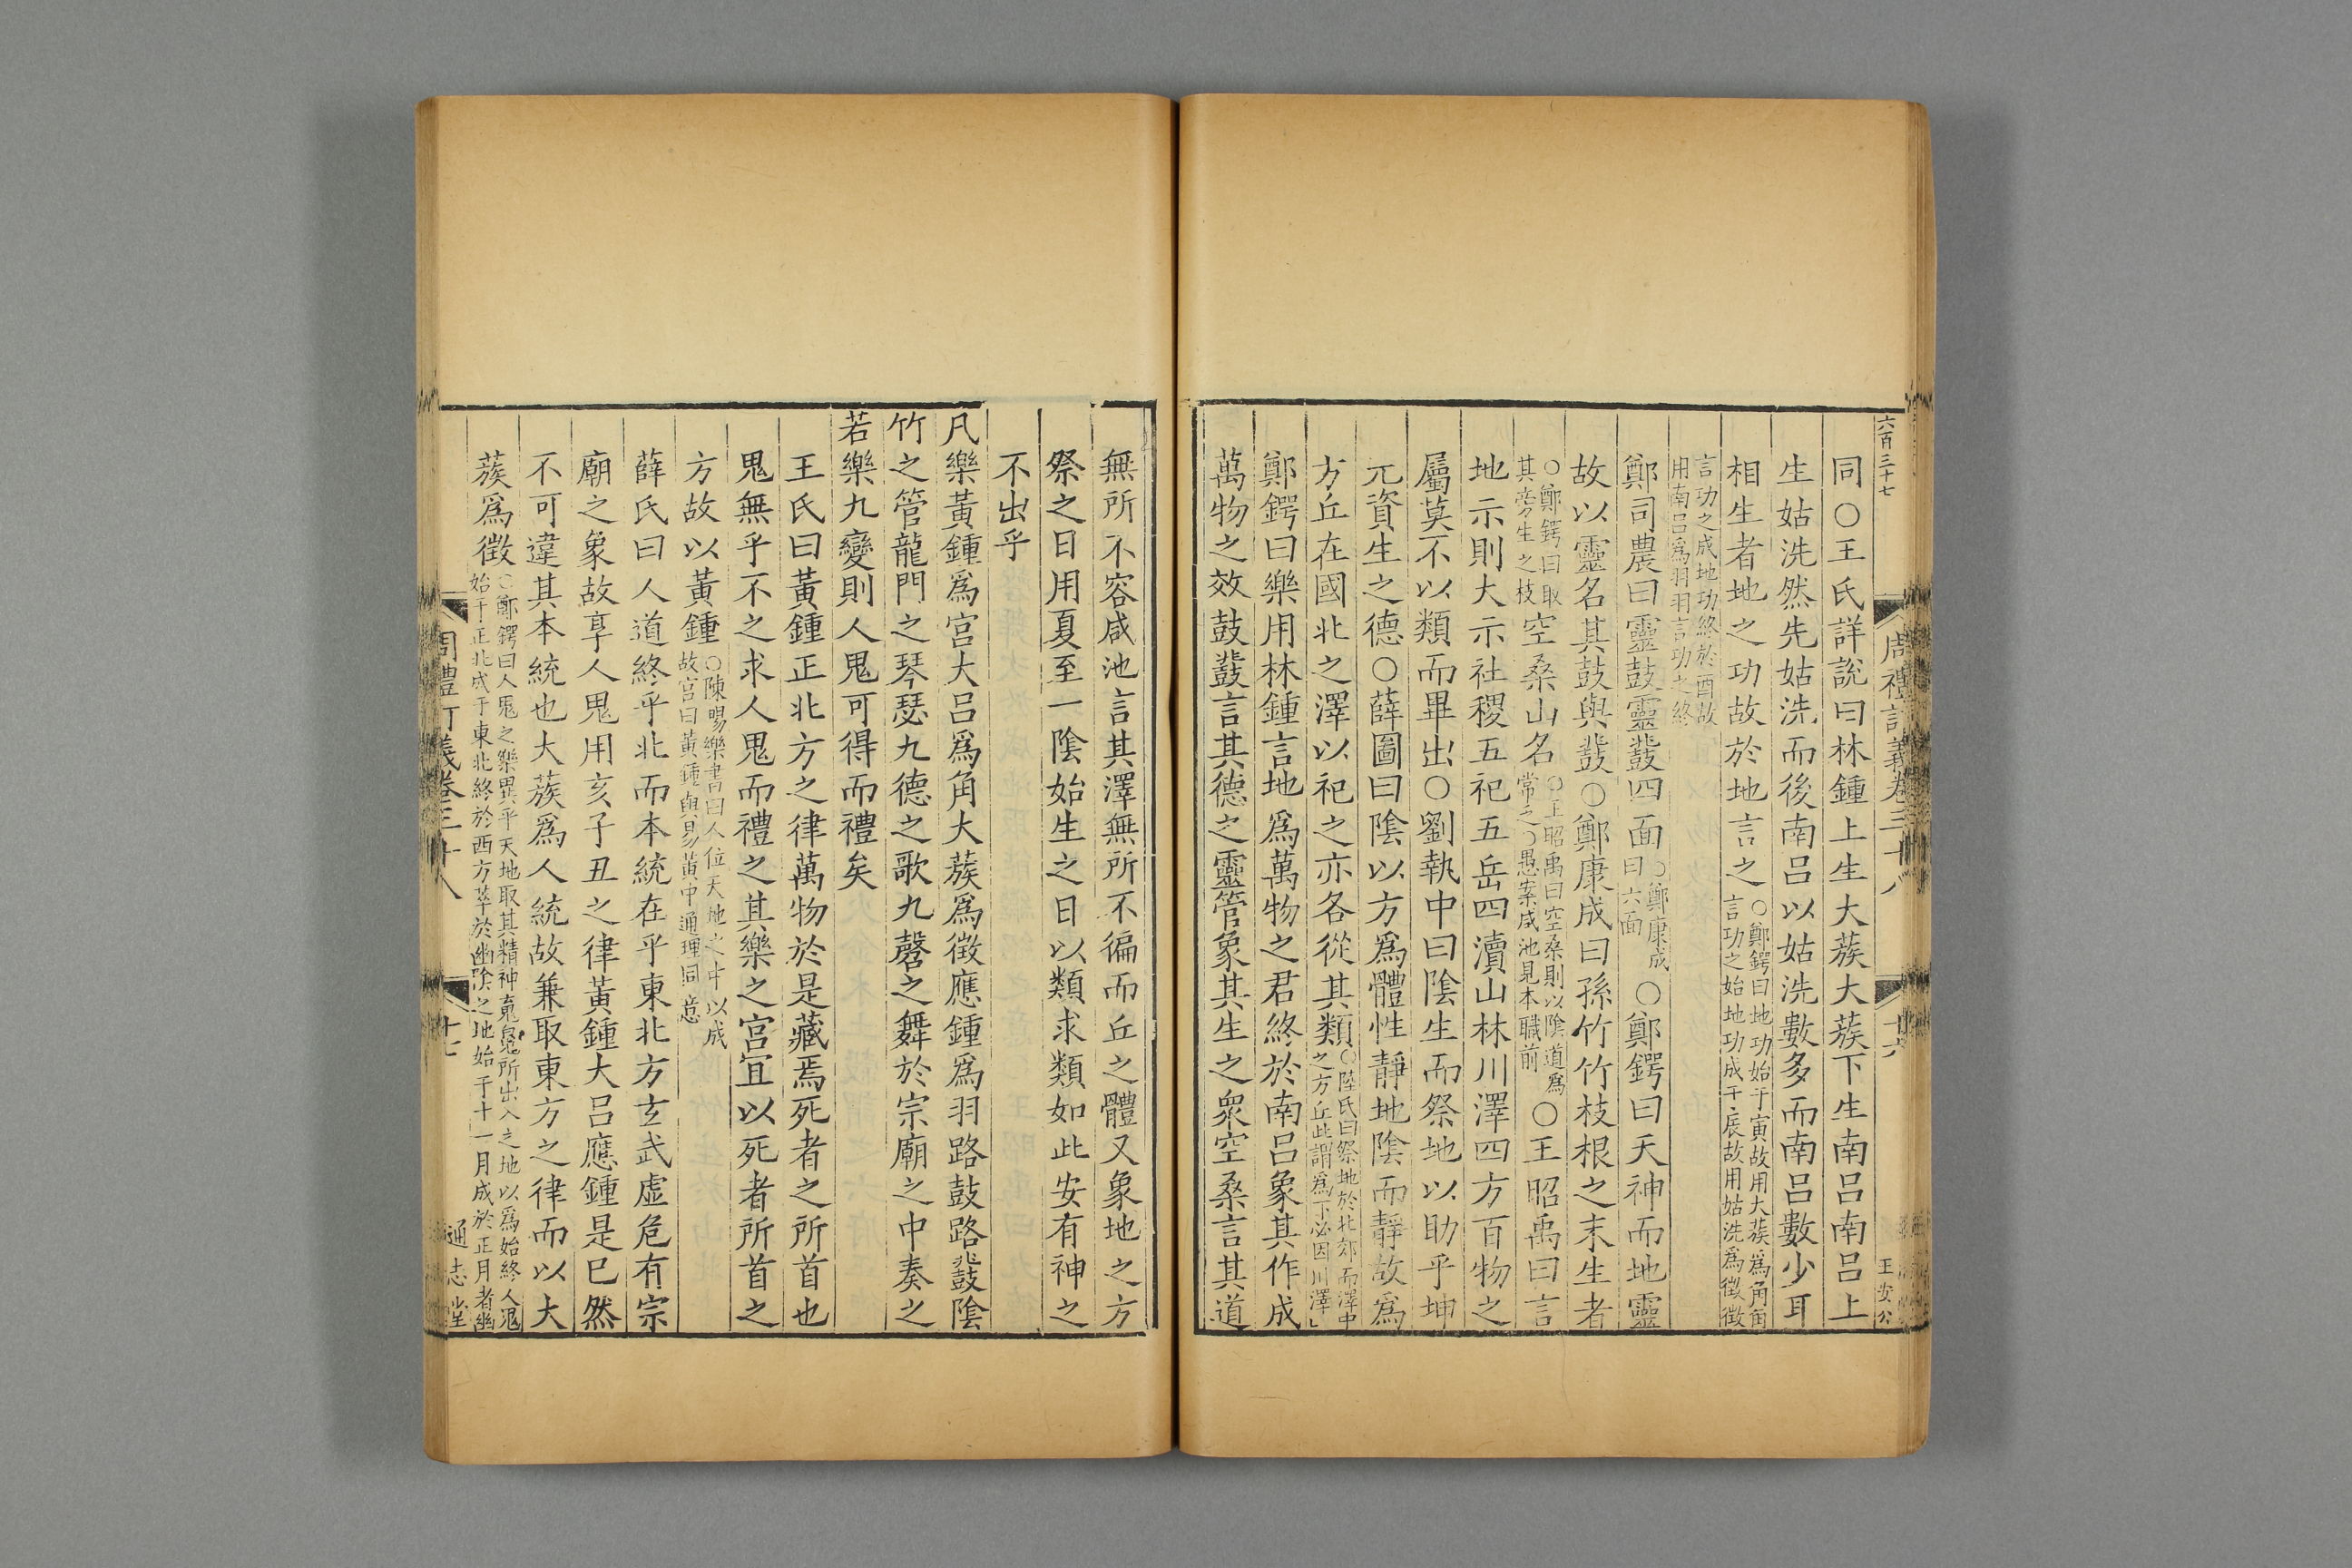 六百三十七
周禮訂義卷三十八
十六
王安公
同○王氏詳說曰林鍾上生大蔟大蔟下生南吕南吕上
生姑洗然先姑洗而後南吕以姑洗數多而南吕數少耳
相生者地之功故於地言之○鄭鍔曰地功始于寅故用大蔟爲角角
言功之始地功成于辰故用姑洗爲徵徵
言功之成地功終於酉故
用南吕爲羽羽言功之終
鄭司農曰靈鼓靈鼗四面○鄭康成
曰六面○鄭鍔曰天神而地靈
故以靈名其鼓與鼗○鄭康成曰孫竹竹枝根之末生者
○鄭鍔曰取
其旁生之枝空桑山名○王昭禹曰空桑則以陰道爲
常之○愚案咸池見本職前○王昭禹曰言
地示則大示社稷五祀五岳四瀆山林川澤四方百物之
屬莫不以類而畢出○劉執中曰陰生而祭地以助乎坤
元資生之德○薛圖曰陰以方爲體性靜地陰而靜故爲
方丘在國北之澤以祀之亦各從其類○陸氏曰祭地於北郊而澤中
之方丘此謂爲下必因川澤
鄭鍔曰樂用林鍾言地爲萬物之君終於南吕象其作成
萬物之效鼓鼗言其德之靈管象其生之衆空桑言其道
無所不容咸池言其澤無所不徧而丘之體又象地之方
祭之日用夏至一陰始生之日以類求類如此安有神之
不出乎
凡樂黃鍾爲宮大吕爲角大蔟爲徵應鍾爲羽路鼓路鼗陰
竹之管龍門之琴瑟九德之歌九磬之舞於宗廟之中奏之
若樂九變則人鬼可得而禮矣
王氏曰黃鍾正北方之律萬物於是藏焉死者之所首也
鬼無乎不之求人鬼而禮之其樂之宮宜以死者所首之
方故以黃鍾○陳暘樂書曰人位天地之中以成
故宮曰黃鍾與易黃中通理同意
薛氏曰人道終乎北而本統在乎東北方玄武虛危有宗
廟之象故享人鬼用亥子丑之律黃鍾大吕應鍾是巳然
不可違其本統也大蔟爲人統故兼取東方之律而以大
蔟爲徵○鄭鍔曰人鬼之樂異乎天地取其精神鬼所出入之地以爲始終人鬼
始于正北成于東北終於西方萃於幽陰之地始于十一月成於正月者幽
周禮訂義卷三十八
十七
通志堂